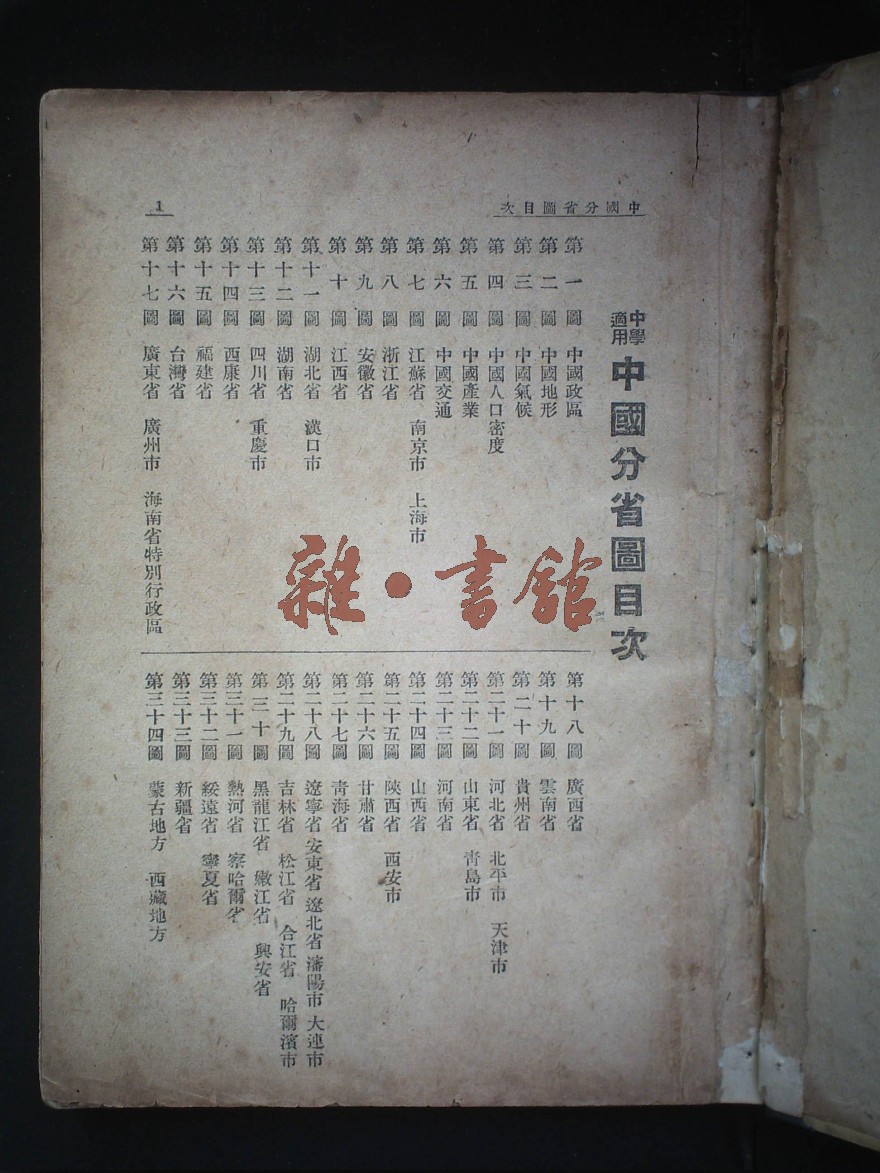 中國分省圖目次
1
中學適用
中國分省圖目次
第一圖 中國政區
第二圖 中國地形
第三圖 中國氣候
第四圖 中國人口密度
第五圖 中國產業
第六圖 中國交通
第七圖 江蘇省 南京市 上海市
第八圖 浙江省
第九圖 安徽省
第十圖 江西省
第十一圖 湖北省 漢口市
第十二圖 湖南省
第十三圖 四川省 重慶市
第十四圖 西康省
第十五圖 福建省
第十六圖 台灣省
第十七圖 廣東省 廣州市 海南省特別行政區
第十八圖 廣西省
第十九圖 雲南省
第二十圖 貴州省
第二十一圖 河北省 北平市 天津市
第二十二圖 山東省 青島市
第二十三圖 河南省
第二十四圖 山西省
第二十五圖 陝西省 西安市
第二十六圖 甘肅省
第二十七圖 青海省
第二十八圖 遼寧省 安東省 遼北省 瀋陽市 大連市
第二十九圖 吉林省 松江省 合江省 哈爾濱市
第三十圖 黑龍江省 嫩江省 興安省
第三十一圖 熱河省 察哈爾省
第三十二圖 綏遠省 寧夏省
第三十三圖 新疆省
第三十四圖 蒙古地方 西藏地方
雜·書館